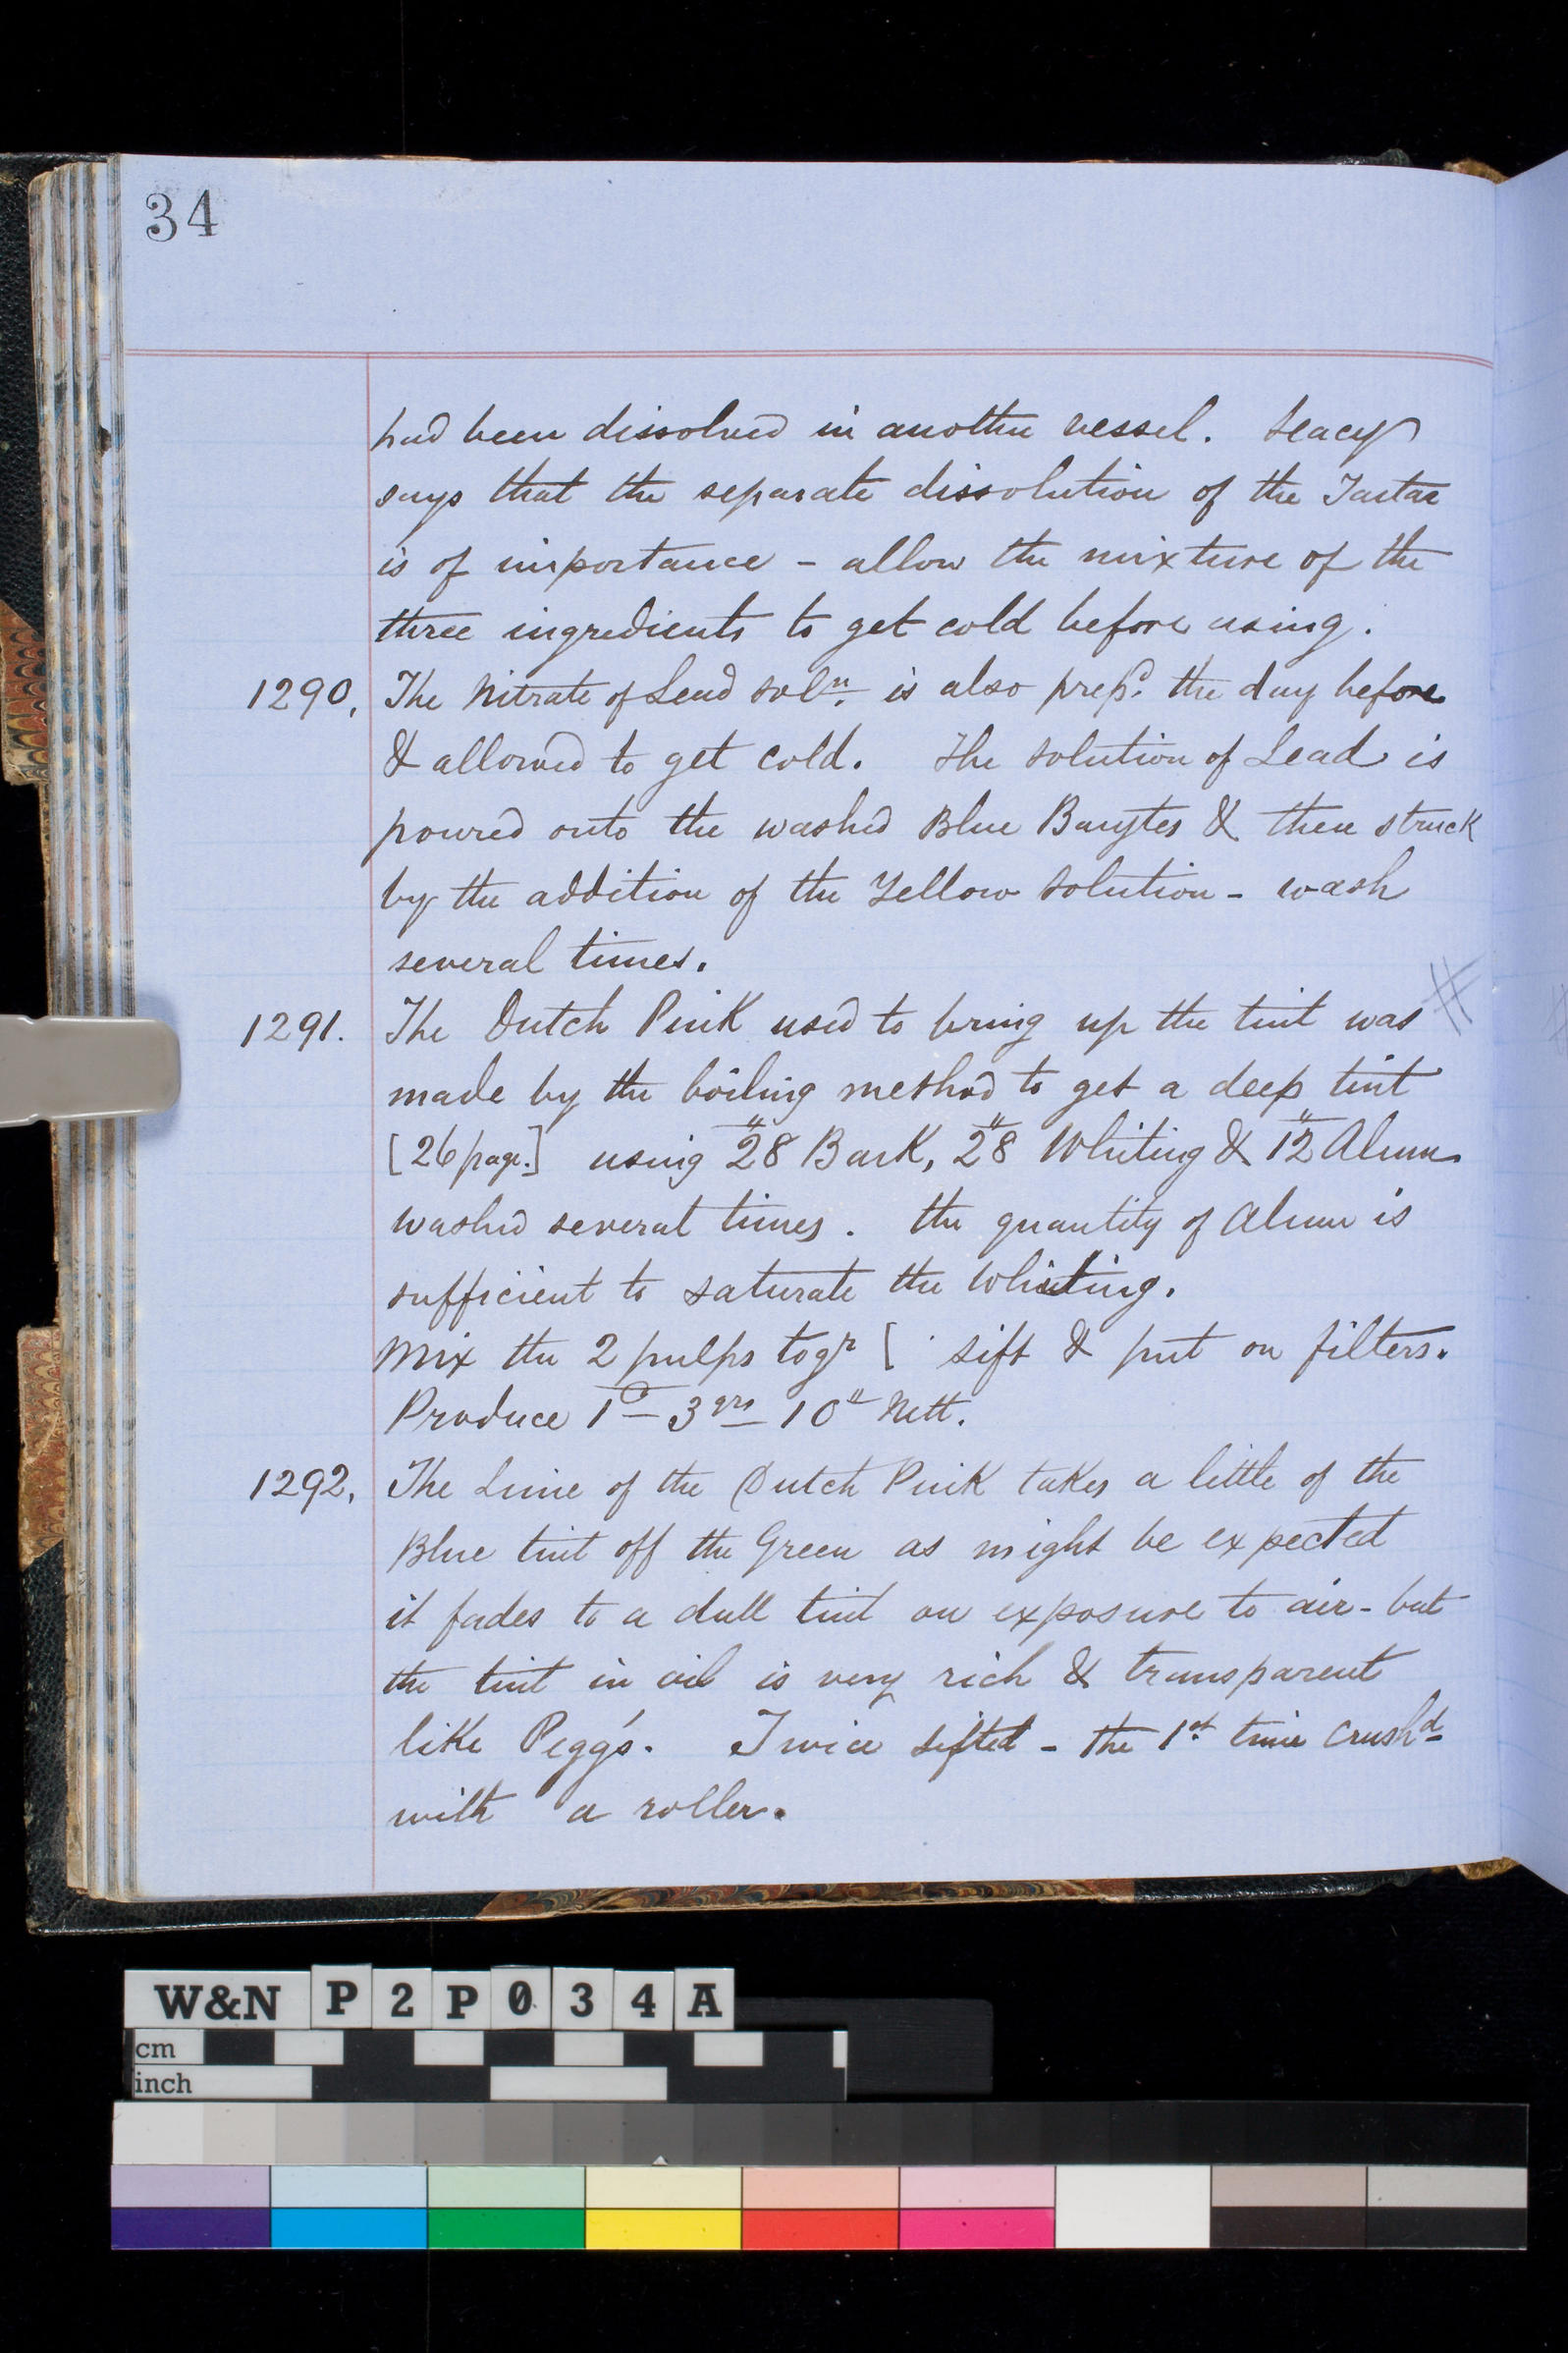 34
had been dissolved in another vessel. Seacy
says that the separate dissolution of the Tartar
is of importance - allow the mixture of the
three ingredients to get cold before using.
1290, The Nitrate of Lead solⁿ. is also prepᵈ. the day before
& allowed to get cold. The solution of Lead is
poured onto the washed Blue Barytes & then struck
by the addition of the Yellow solution - wash
several times.
1291. The Dutch Pink used to bring up the tint was #
made by the boiling method to get a deep tint
[26 page.] using 28" Bark, 28" Whiting & 12" Alum
washed several times. the quantity of Alum is
sufficient to saturate the Whiting.
Mix the 2 pulps togʳ [ sift & put on filters.
Produce 1ᶜ - 3 qrs 10" Nett.
1292, The Lime of the Dutch Pink takes a little of the
Blue tint off the Green as might be expected
it fades to a dull tint on exposure to air - but
the tint in oil is very rich & transparent
like Pegg's. Twice sifted - the 1ˢᵗ time crushᵈ
with a roller.
W&N P2P034A
cm
inch